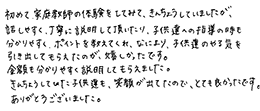 初めて、家庭教師の体験をしてみて、きんちょうしていましたが、
話しやすく、丁寧に説明して頂いたり、子供達への指導の時も
分かりやすく、ポイントを教えてくれ、なにより、子供達のやる気を
引き出してもらえたのが、嬉しかったです。
金額も分かりやすく説明してもらえました。
きんちょうしていた子供達も、笑顔が出てたので、とても良かったです。
ありがとうございました。